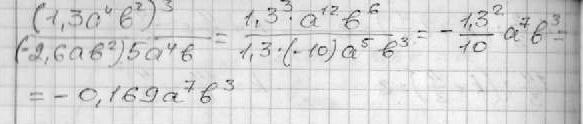 (1,3a⁴b²)³/(-2,6ab²)5a⁴b = 1,3³·a¹²b⁶/1,3·(-10)a⁵b³ = -1,3²/10 a⁷b³ =
= -0,169a⁷b³